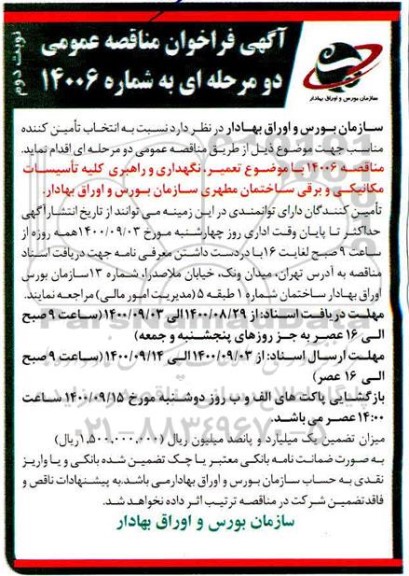 نوبت دوم
آگهی فراخوان مناقصه عمومی
دو مرحله ای به شماره ۱۴۰۰۶
سازمان بورس و اوراق بهادار
سازمان بورس و اوراق بهادار در نظر دارد نسبت به انتخاب تأمین کننده
مناسب جهت موضوع ذیل از طریق مناقصه عمومی دو مرحله ای اقدام نماید.
مناقصه ۱۴۰۰۶ با موضوع تعمیر، نگهداری و راهبری کلیه تأسیسات
مکانیکی و برقی ساختمان مطهری سازمان بورس و اوراق بهادار.
تأمین کنندگان دارای توانمندی در این زمینه می توانند از تاریخ انتشار آگهی
حداکثر تا پایان وقت اداری روز چهارشنبه مورخ ۱۴۰۰/۰۹/۰۳ همه روزه از
ساعت ۹ صبح لغایت ۱۶ با در دست داشتن معرفی نامه جهت دریافت اسناد
مناقصه به آدرس تهران، میدان ونک، خیابان ملاصدرا، شماره ۱۳ سازمان بورس
اوراق بهادار ساختمان شماره ۱ طبقه ۵ (مدیریت امور مالی) مراجعه نمایند.
مهلت دریافت اسناد: از ۱۴۰۰/۰۸/۲۹ الی ۱۴۰۰/۰۹/۰۳ (ساعت ۹ صبح
الی ۱۶ عصر به جز روزهای پنجشنبه و جمعه)
مهلت ارسال اسناد: از ۱۴۰۰/۰۹/۰۳ الی ۱۴۰۰/۰۹/۱۴ (ساعت ۹ صبح
الی ۱۶ عصر)
بازگشایی پاکت های الف و ب روز دوشنبه مورخ ۱۴۰۰/۰۹/۱۵ ساعت
۱۴:۰۰ عصر می باشد.
میزان تضمین یک میلیارد و پانصد میلیون ریال (۱،۵۰۰،۰۰۰،۰۰۰ ریال)
به صورت ضمانت نامه بانکی معتبر یا چک تضمین شده بانکی و یا واریز
نقدی به حساب سازمان بورس و اوراق بهادار می باشد. به پیشنهادات ناقص و
فاقد تضمین شرکت در مناقصه ترتیب اثر داده نخواهد شد.
سازمان بورس و اوراق بهادار
۰۲۱-۸۸۳۴۹۶۷۰-۵